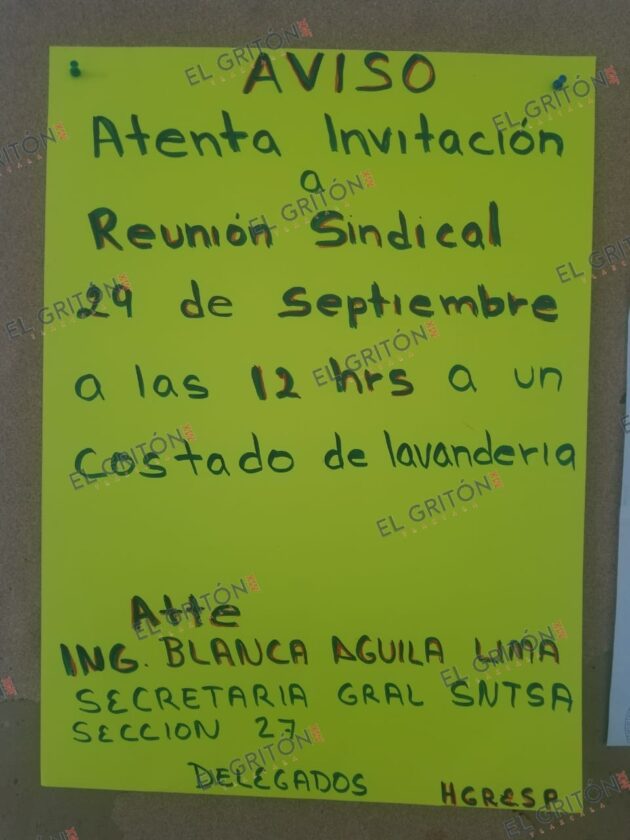 AVISO
Atenta Invitación
a
Reunión Sindical
29 de Septiembre
a las 12 hrs a un
Costado de lavanderia
Atte
ING. BLANCA AGUILA LIMA
SECRETARIA GRAL SNTSA
SECCION 27
DELEGADOS HGRESP
EL GRITÓN
EL GRITÓN
EL GRITÓN
EL GRITÓN
EL GRITÓN
EL GRITÓN
EL GRITÓN
EL GRITÓN
EL GRITÓN
EL GRITÓN
EL GRITÓN